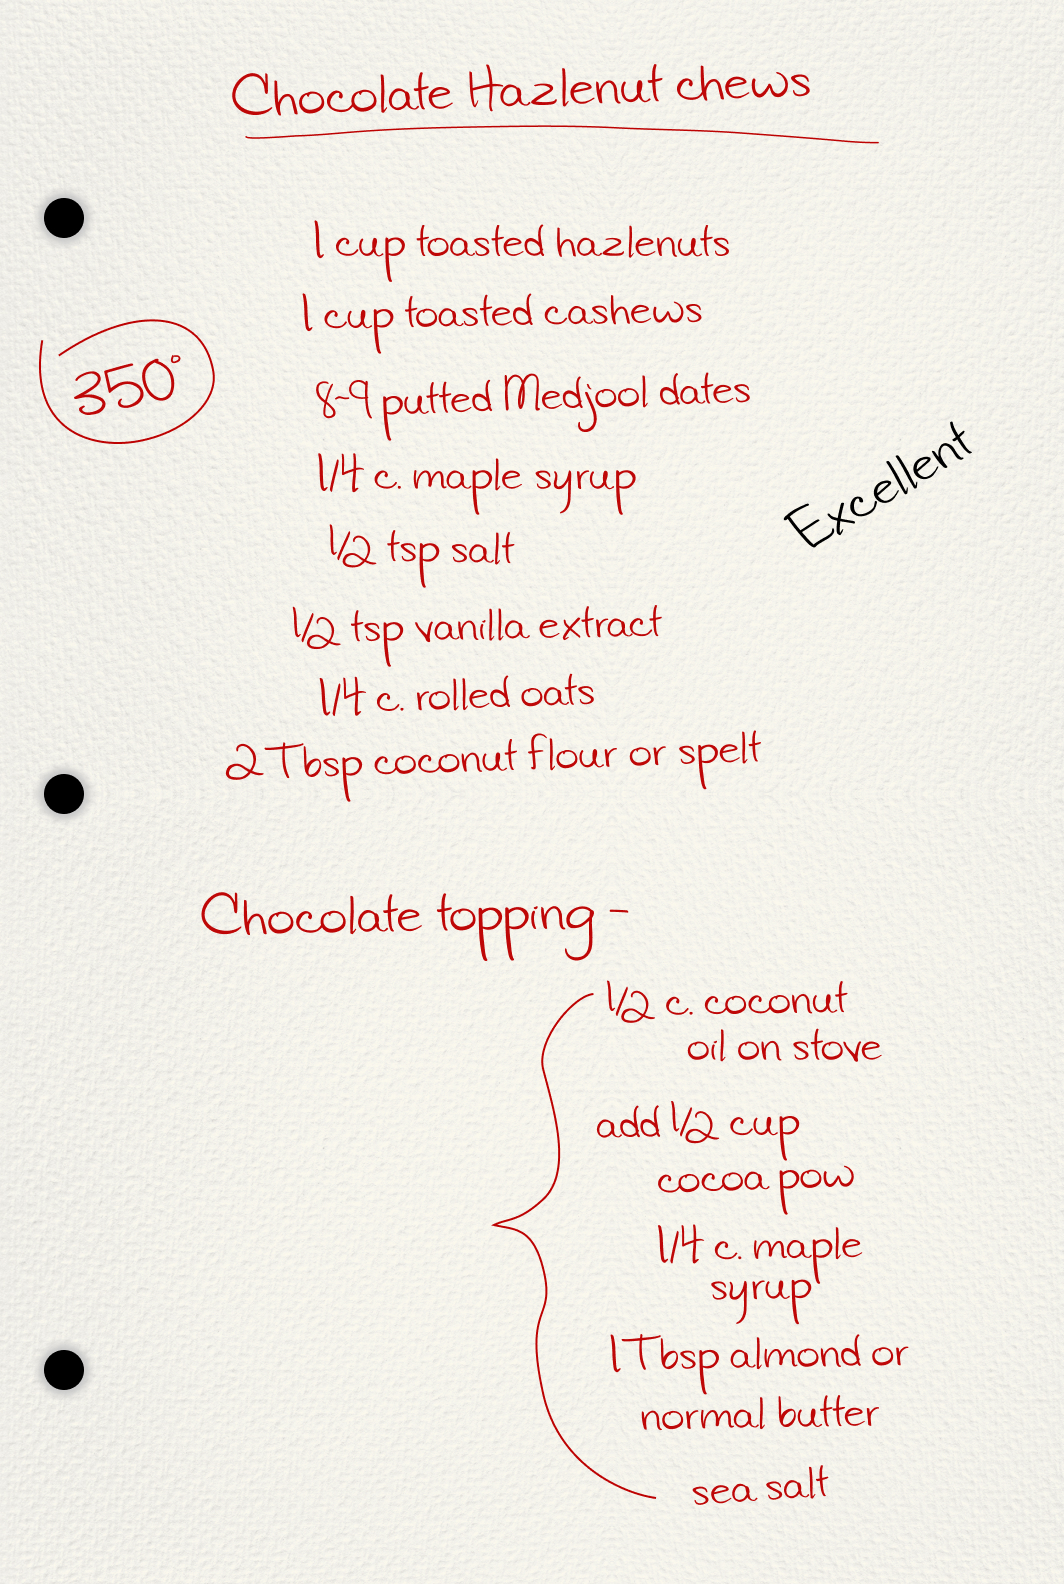 Chocolate Hazlenut chews
1 cup toasted hazlenuts
1 cup toasted cashews
350°
8-9 putted Medjool dates
Excellent
1/4 c. maple syrup
1/2 tsp salt
1/2 tsp vanilla extract
1/4 c. rolled oats
2 Tbsp coconut flour or spelt
Chocolate topping -
1/2 c. coconut
oil on stove
add 1/2 cup
cocoa pow
1/4 c. maple
syrup
1 Tbsp almond or
normal butter
sea salt